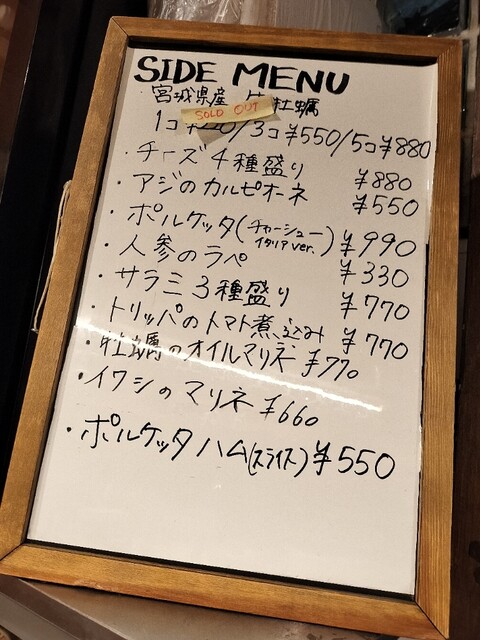 SIDE MENU
・宮城県産 牡蠣
SOLD OUT
1コ /3コ ¥550/5コ ¥880
・チーズ4種盛り ¥880
・アジのカルピオーネ ¥550
・ポルケッタ(チャーシューイタリアver.) ¥990
・人参のラペ ¥330
・サラミ3種盛り ¥770
・トリッパのトマト煮込み ¥770
・牡蠣のオイルマリネ ¥770
・イワシのマリネ ¥660
・ポルケッタハム(スライス) ¥550